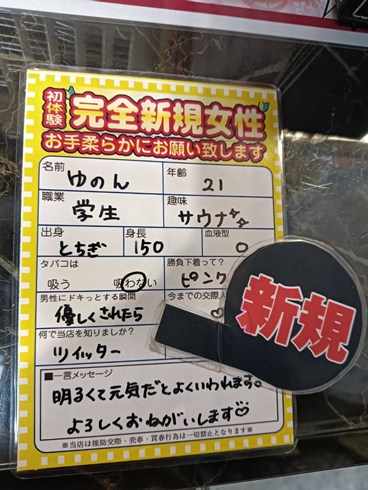 初体験
完全新規女性
お手柔らかにお願い致します
名前 ゆのん
年齢 21
職業 学生
趣味 サウナ
出身 とちぎ
身長 150
血液型 O
タバコは 吸う 吸わない
勝負下着って? ピンク
男性にドキっとする瞬間 優しくされたら
今までの交際人
何で当店を知りましたか? ツイッター
新規
■一言メッセージ
明るくて元気だとよくいわれます。
よろしくおねがいします♡
※当店は援助交際・売春・買春行為は一切禁止となります※